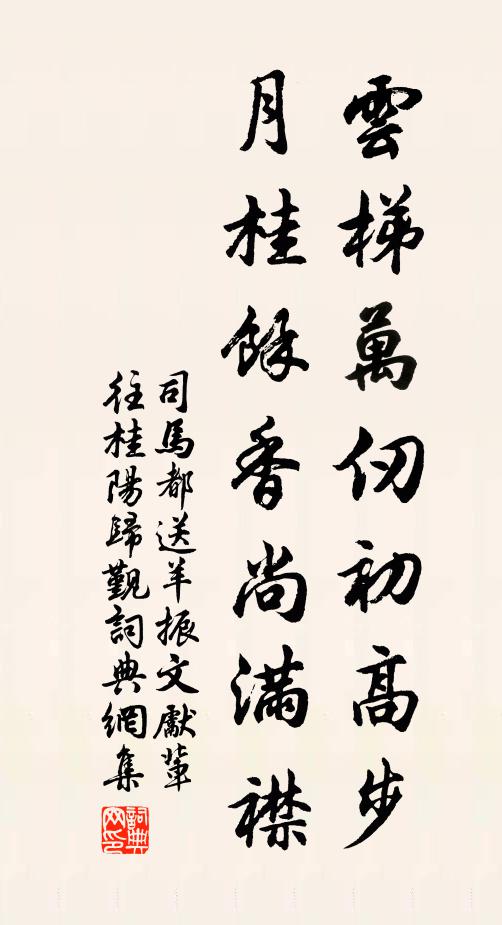 雲梯萬仞初高步
月桂餘香尚滿襟
司馬都送羊振文獻輩
往桂陽歸覲詞典網集
詞典網印